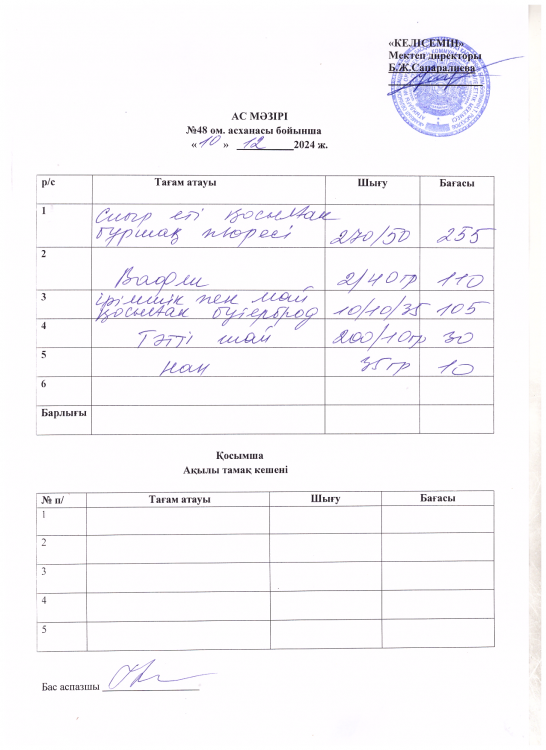 «КЕЛІСЕМІН»
Мектеп директоры
Б.Ж.Сапаралиева
АС МӘЗІРІ
№48 ом. асханасы бойынша
« 10 » 12 2024 ж.
р/с Тағам атауы Шығу Бағасы
1 Сиыр еті қосылған
бұршақ пюресі 270/50 255
2 Вафли 2/40гр 110
3 ірімшік пен май
қосылған бутерброд 10/10/35 105
4 Тәтті шай 200/10гр 30
5 нан 35гр 10
6
Барлығы
Қосымша
Ақылы тамақ кешені
№ п/ Тағам атауы Шығу Бағасы
1
2
3
4
5
Бас аспазшы